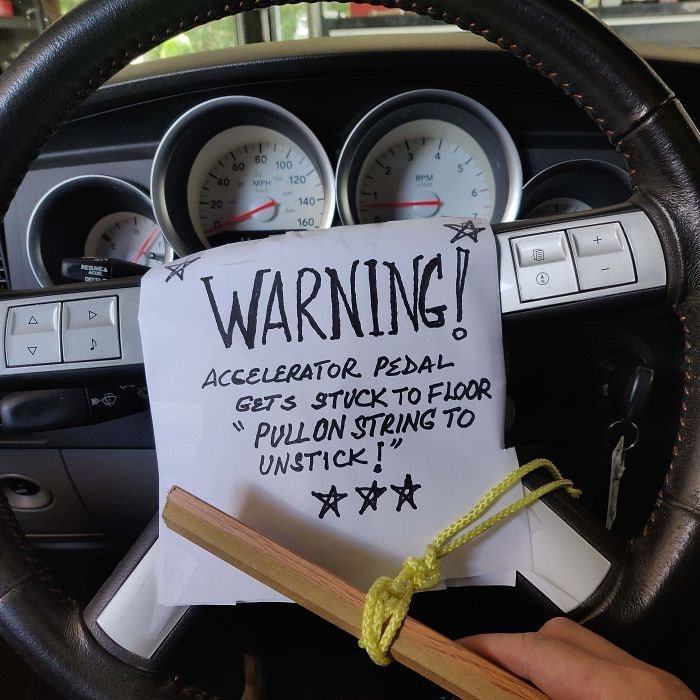 80
60
100
40
MPH
120
20
140
160
RPM
2
3
4
5
6
7
RESUME
ACCEL
WARNING!
ACCELERATOR PEDAL
GETS STUCK TO FLOOR
"PULL ON STRING TO
UNSTICK!"